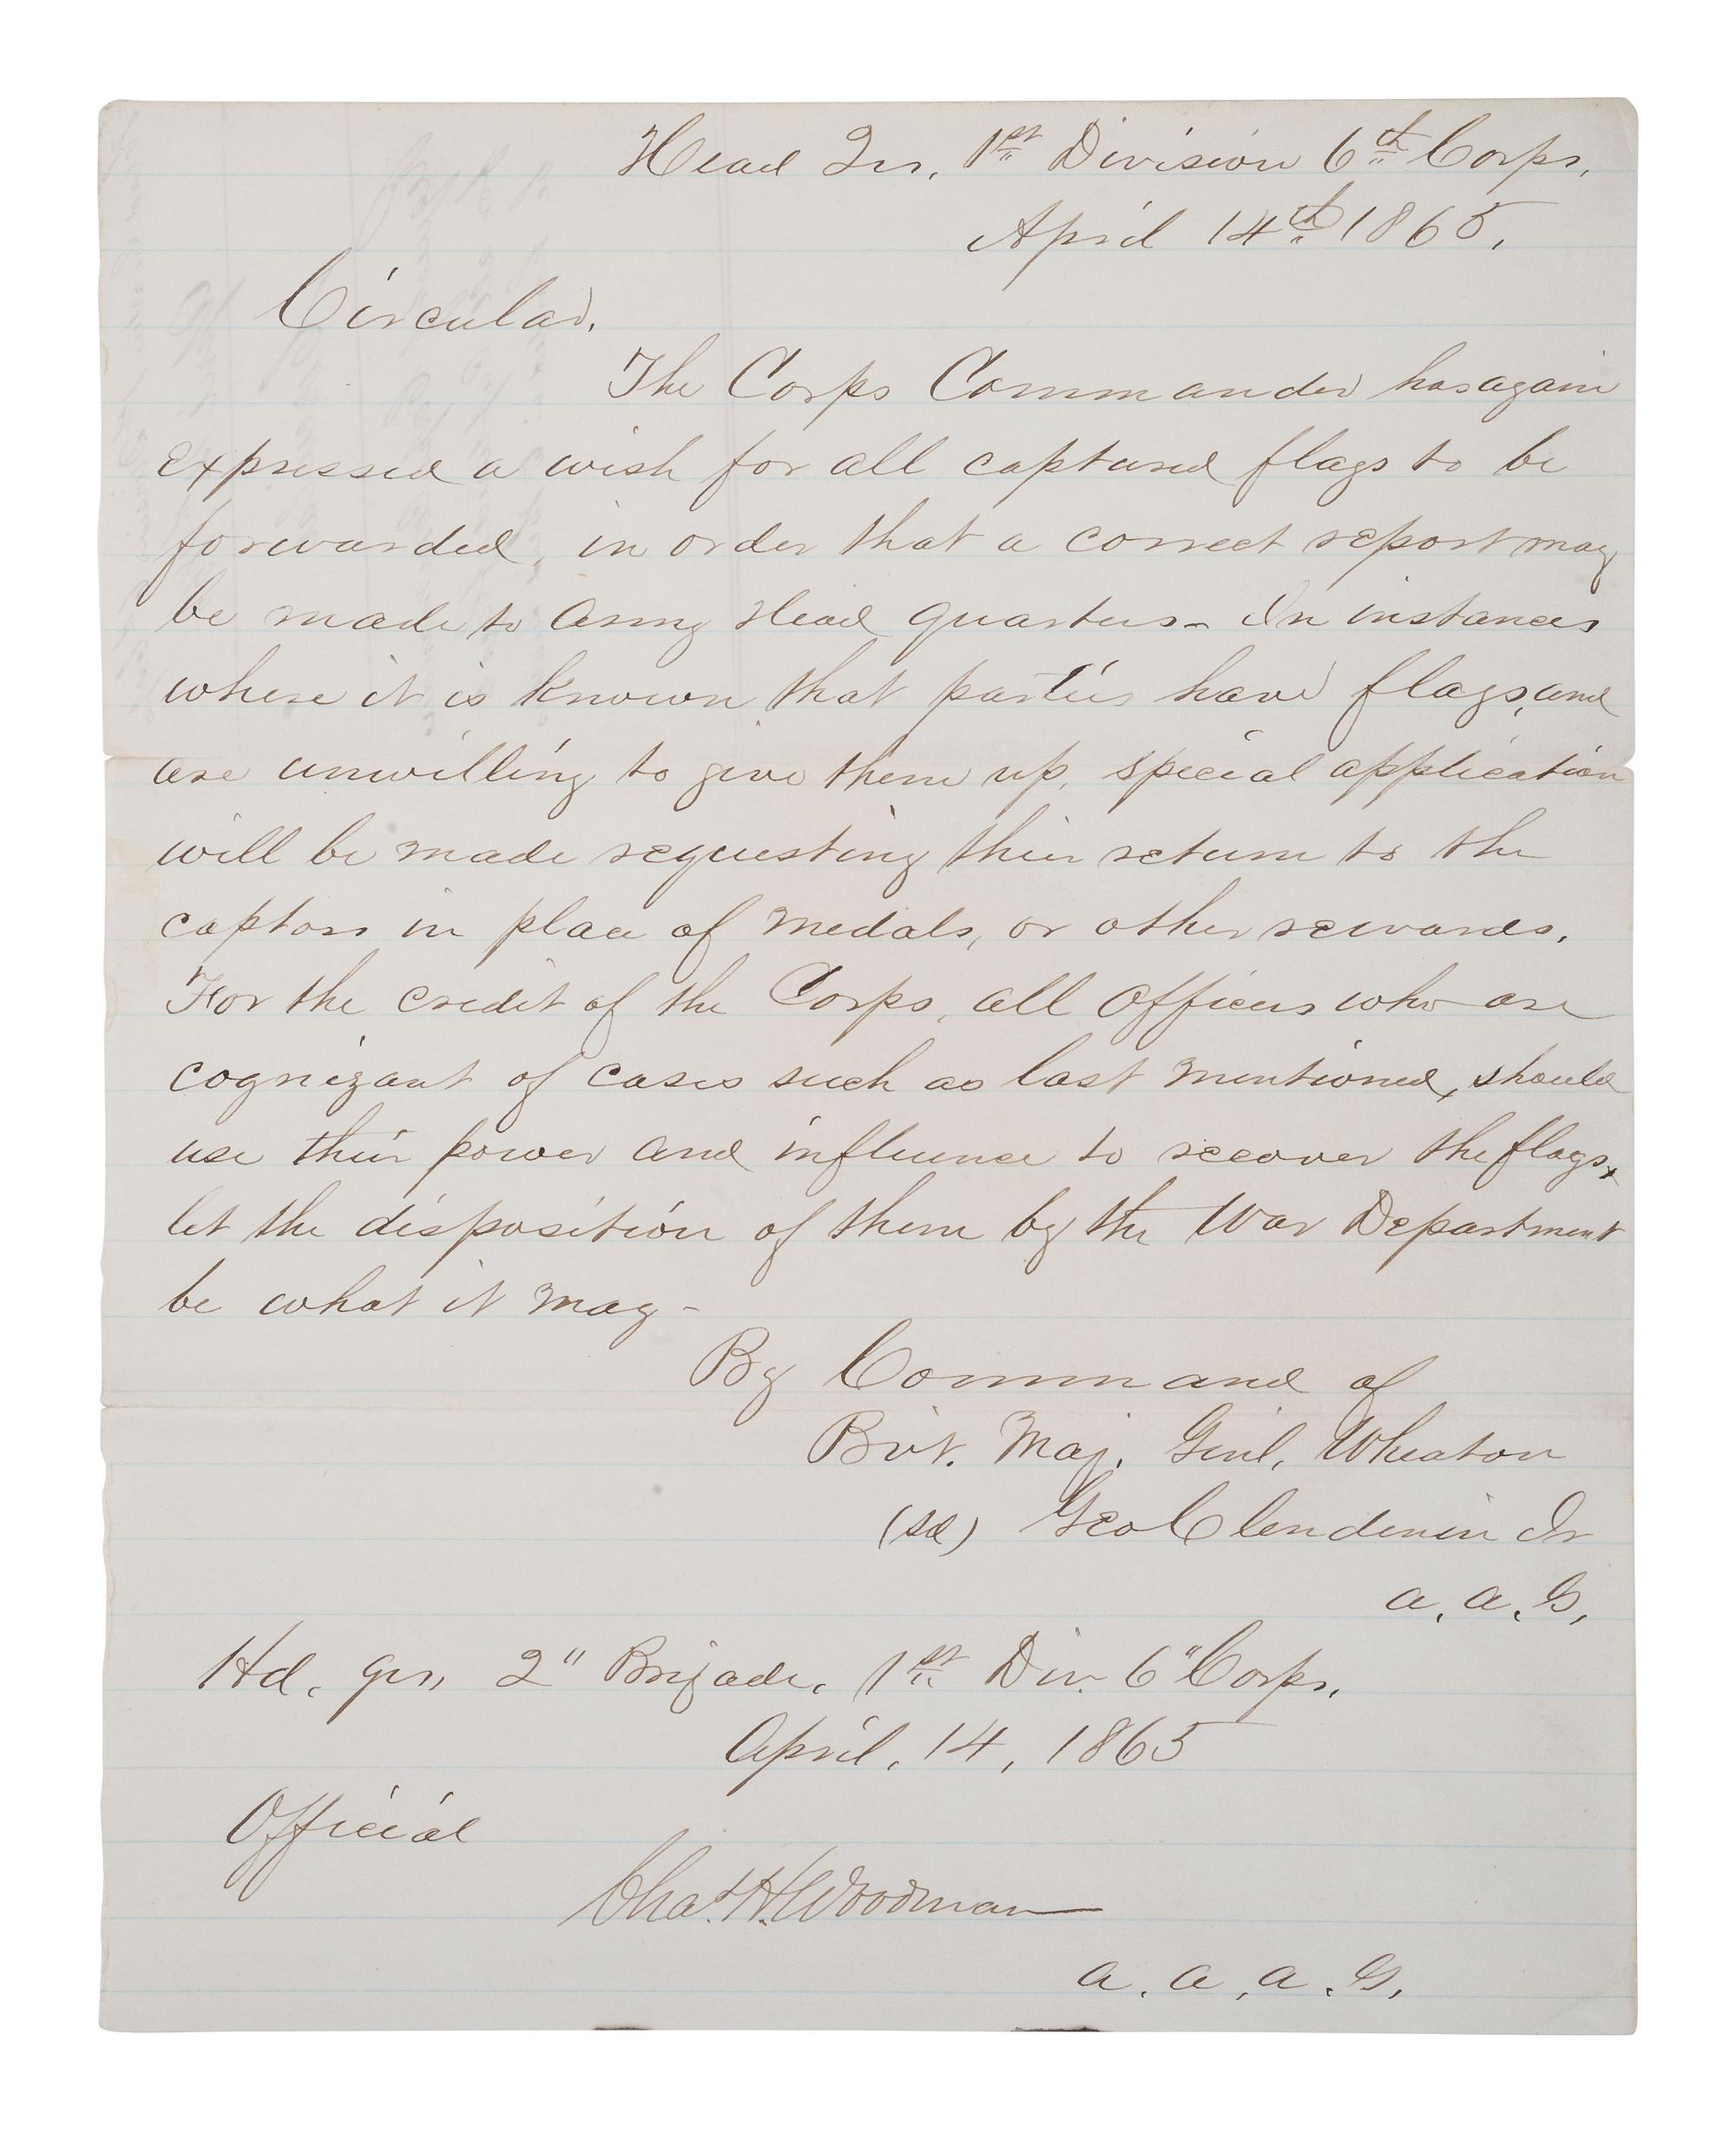 Head Qrs. 1st Division 6th Corps,
April 14th 1865.
Circular.
The Corps Commander has again
expressed a wish for all captured flags to be
forwarded, in order that a correct report may
be made to Army Head quarters - In instances
where it is known that parties have flags, and
are unwilling to give them up, special application
will be made requesting their return to the
captors in place of medals, or other rewards.
For the credit of the Corps, all Officers who are
cognizant of cases such as last mentioned, should
use their power and influence to recover the flags,
let the disposition of them by the War Department
be what it may -
By Command of
Bvt. Maj. Genl. Wheaton
(sd) Geo Clendenin Jr
A. A. G.
Hd. qrs. 2" Brigade. 1st Div. 6" Corps.
April, 14, 1865
Official
Chas. H. Woodman
A. A. A. G.